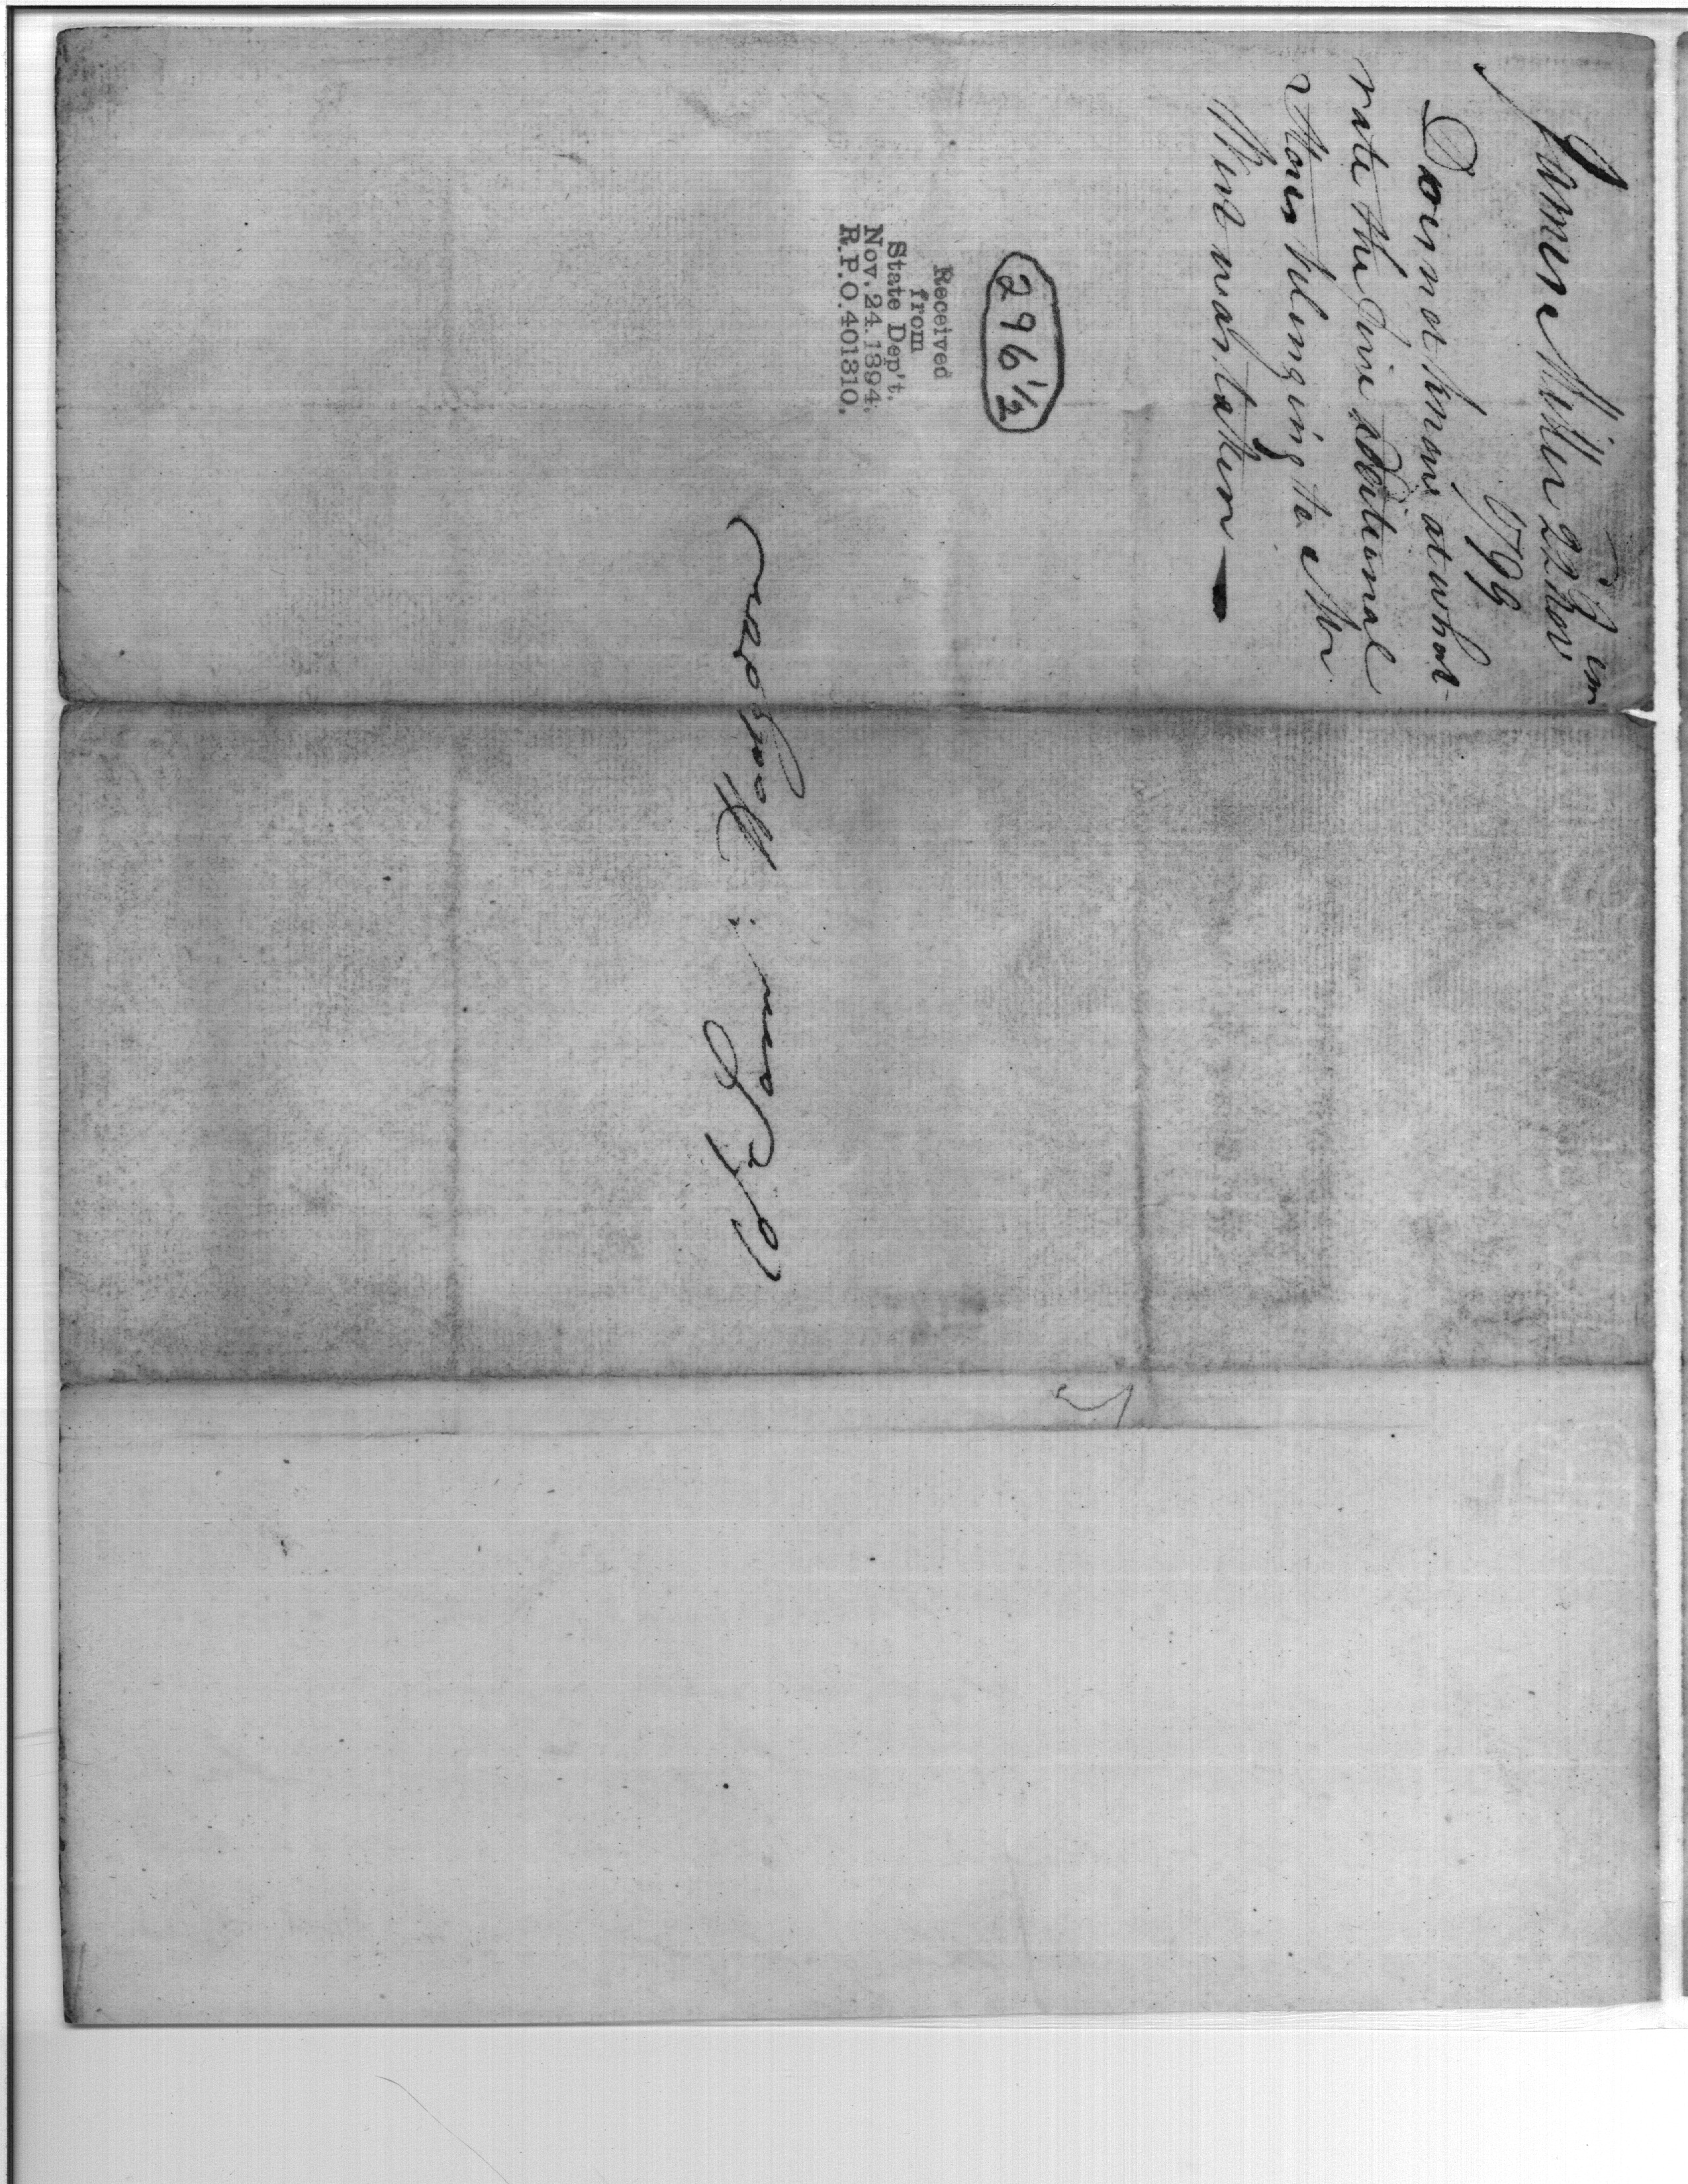 James Miller 22 Nov.
1799
Does not know at what
rate the five additional
Stores belonging to Mr
was taken
296½
Received
from
State Dep't.
Nov. 24. 1894.
R.P.O. 401810.